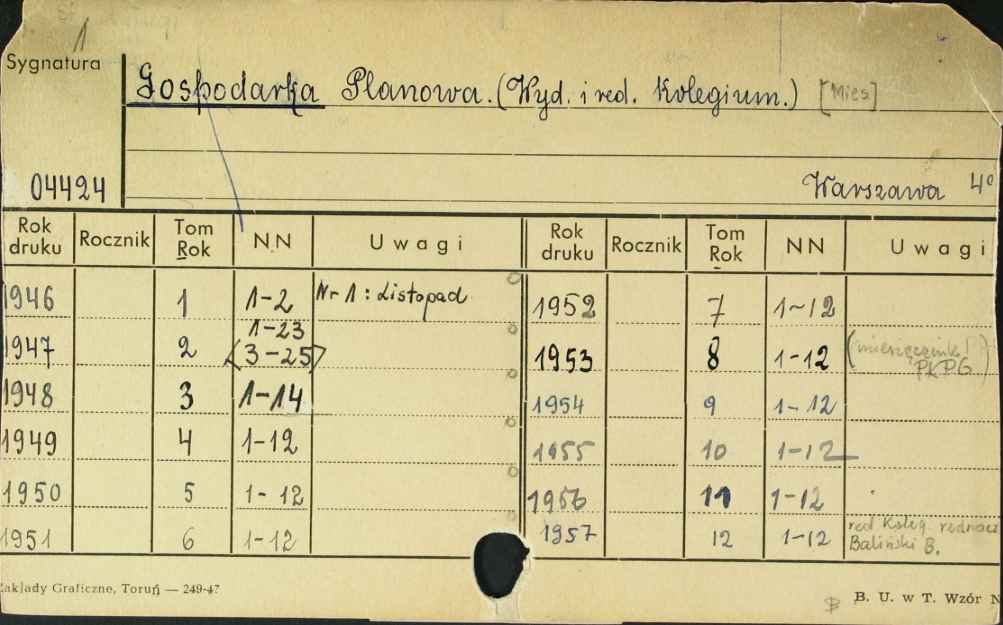 1
Sygnatura
Gospodarka Planowa. (Wyd. i red. Kolegium.) [Mies]
04424
Warszawa 4°
Rok druku Rocznik Tom Rok NN Uwagi Rok druku Rocznik Tom Rok NN Uwagi
1946 1 1-2 Nr 1: Listopad 1952 7 1-12
1-23
1947 2 (3-25) 1953 8 1-12 (miesięcznik!) PKPG
1948 3 1-14 1954 9 1-12
1949 4 1-12 1955 10 1-12
1950 5 1-12 1956 11 1-12
1951 6 1-12 1957 12 1-12 red Koleg.
Baliński B.
Zakłady Graficzne, Toruń — 249-47
B. U. w T. Wzór N